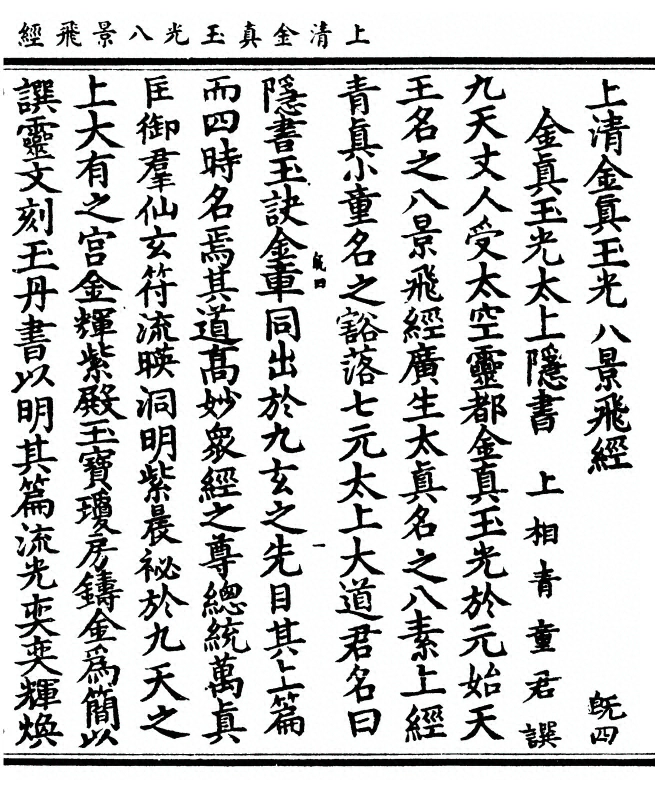 上清金真玉光八景飛經
上清金真玉光八景飛經 旣四
金眞玉光太上隱書 上相青童君譔
九天丈人受太空靈都金真玉光於元始天
王名之八景飛經廣生太眞名之八素上經
青眞小童名之豁落七元太上大道君名曰
隱書玉訣金章同出於九玄之先目其上篇
旣四 一
而四時名焉其道髙妙衆經之尊總統萬眞
匡御羣仙玄符流暎洞明紫晨祕於九天之
上大有之宮金輝紫殿玉寶瓊房鑄金爲簡以
譔靈文刻玉丹書以明其篇流光奕奕輝煥